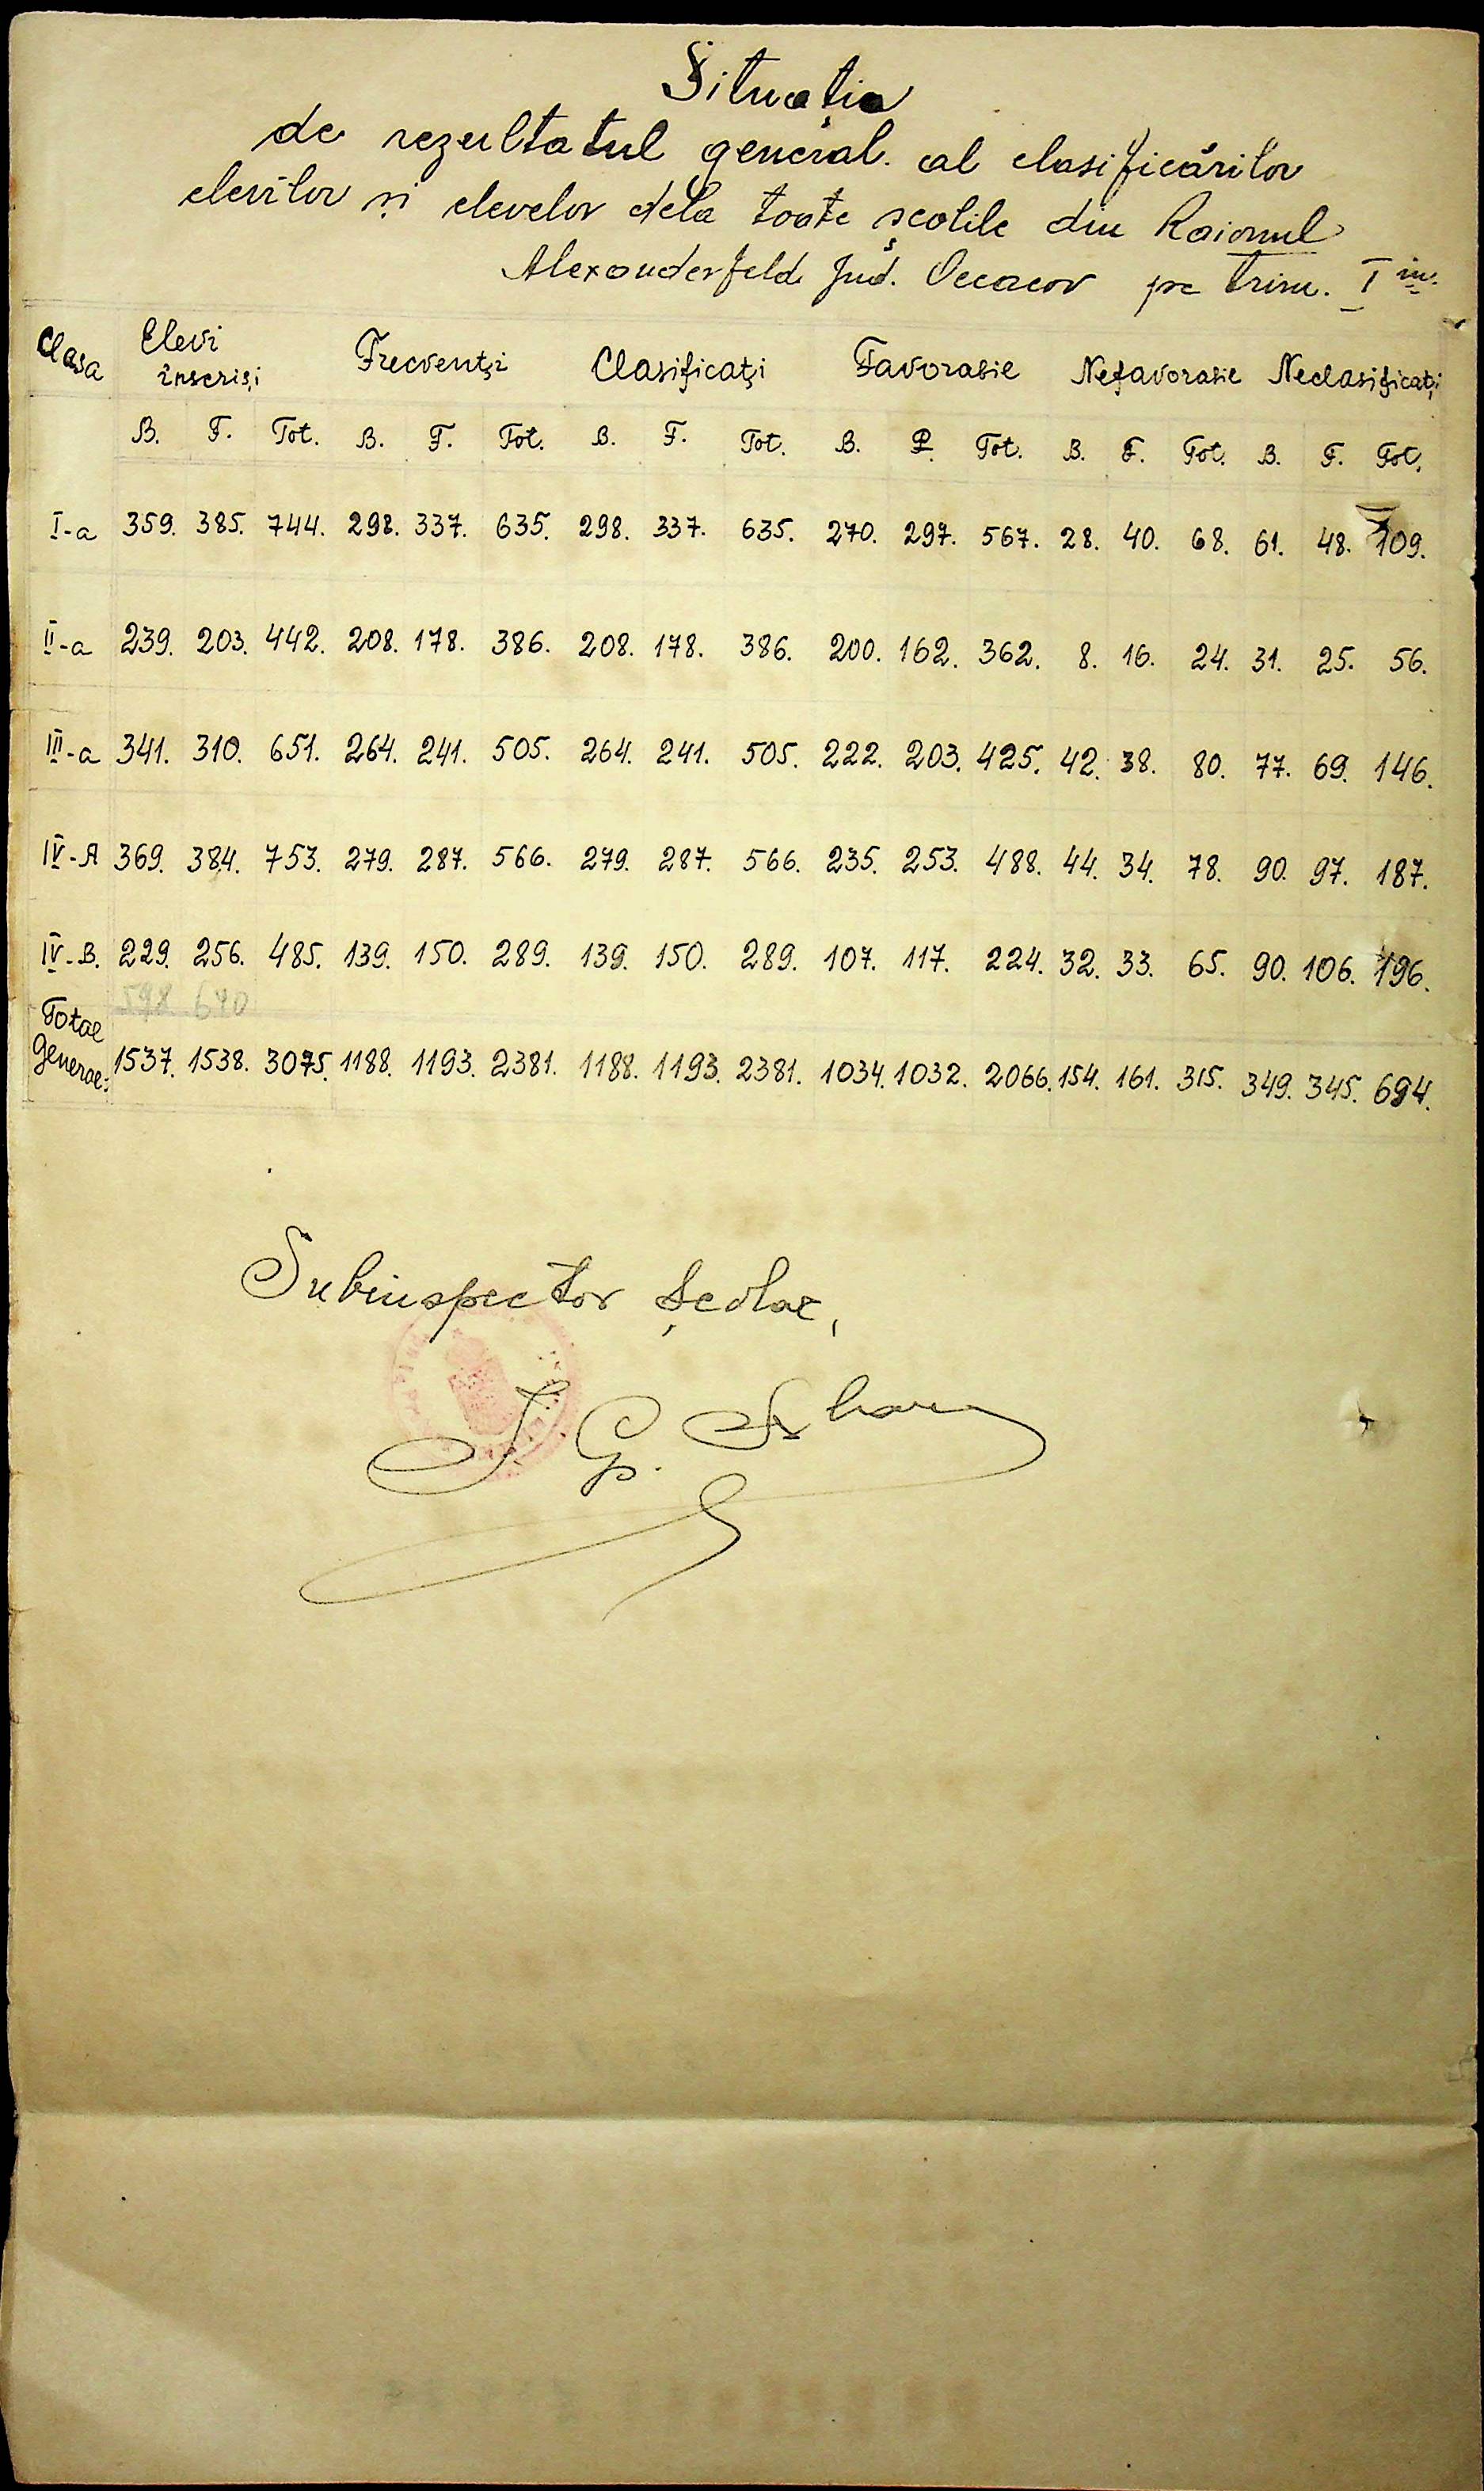 Situația
de rezultatul general. al clasificărilor
elevilor și elevelor dela toate școlile din Raionul
Alexanderfeld Jud. Oceacov pe trim. I
Clasa Elevi înscriși Frecvenți Clasificați Favorabile Nefavorabile Neclasificați
B. F. Tot. B. F. Tot. B. F. Tot. B. F. Tot. B. F. Tot. B. F. Tot.
I-a 359. 385. 744. 298. 337. 635. 298. 337. 635. 270. 297. 567. 28. 40. 68. 61. 48. 109.
II-a 239. 203. 442. 208. 178. 386. 208. 178. 386. 200. 162. 362. 8. 16. 24. 31. 25. 56.
III-a 341. 310. 651. 264. 241. 505. 264. 241. 505. 222. 203. 425. 42. 38. 80. 77. 69. 146.
IV-A 369. 384. 753. 279. 287. 566. 279. 287. 566. 235. 253. 488. 44. 34. 78. 90. 97. 187.
IV-B. 229. 256. 485. 139. 150. 289. 139. 150. 289. 107. 117. 224. 32. 33. 65. 90. 106. 196.
598 640
Total general: 1537. 1538. 3075. 1188. 1193. 2381. 1188. 1193. 2381. 1034. 1032. 2066. 154. 161. 315. 349. 345. 694.
Subinspector școlar,